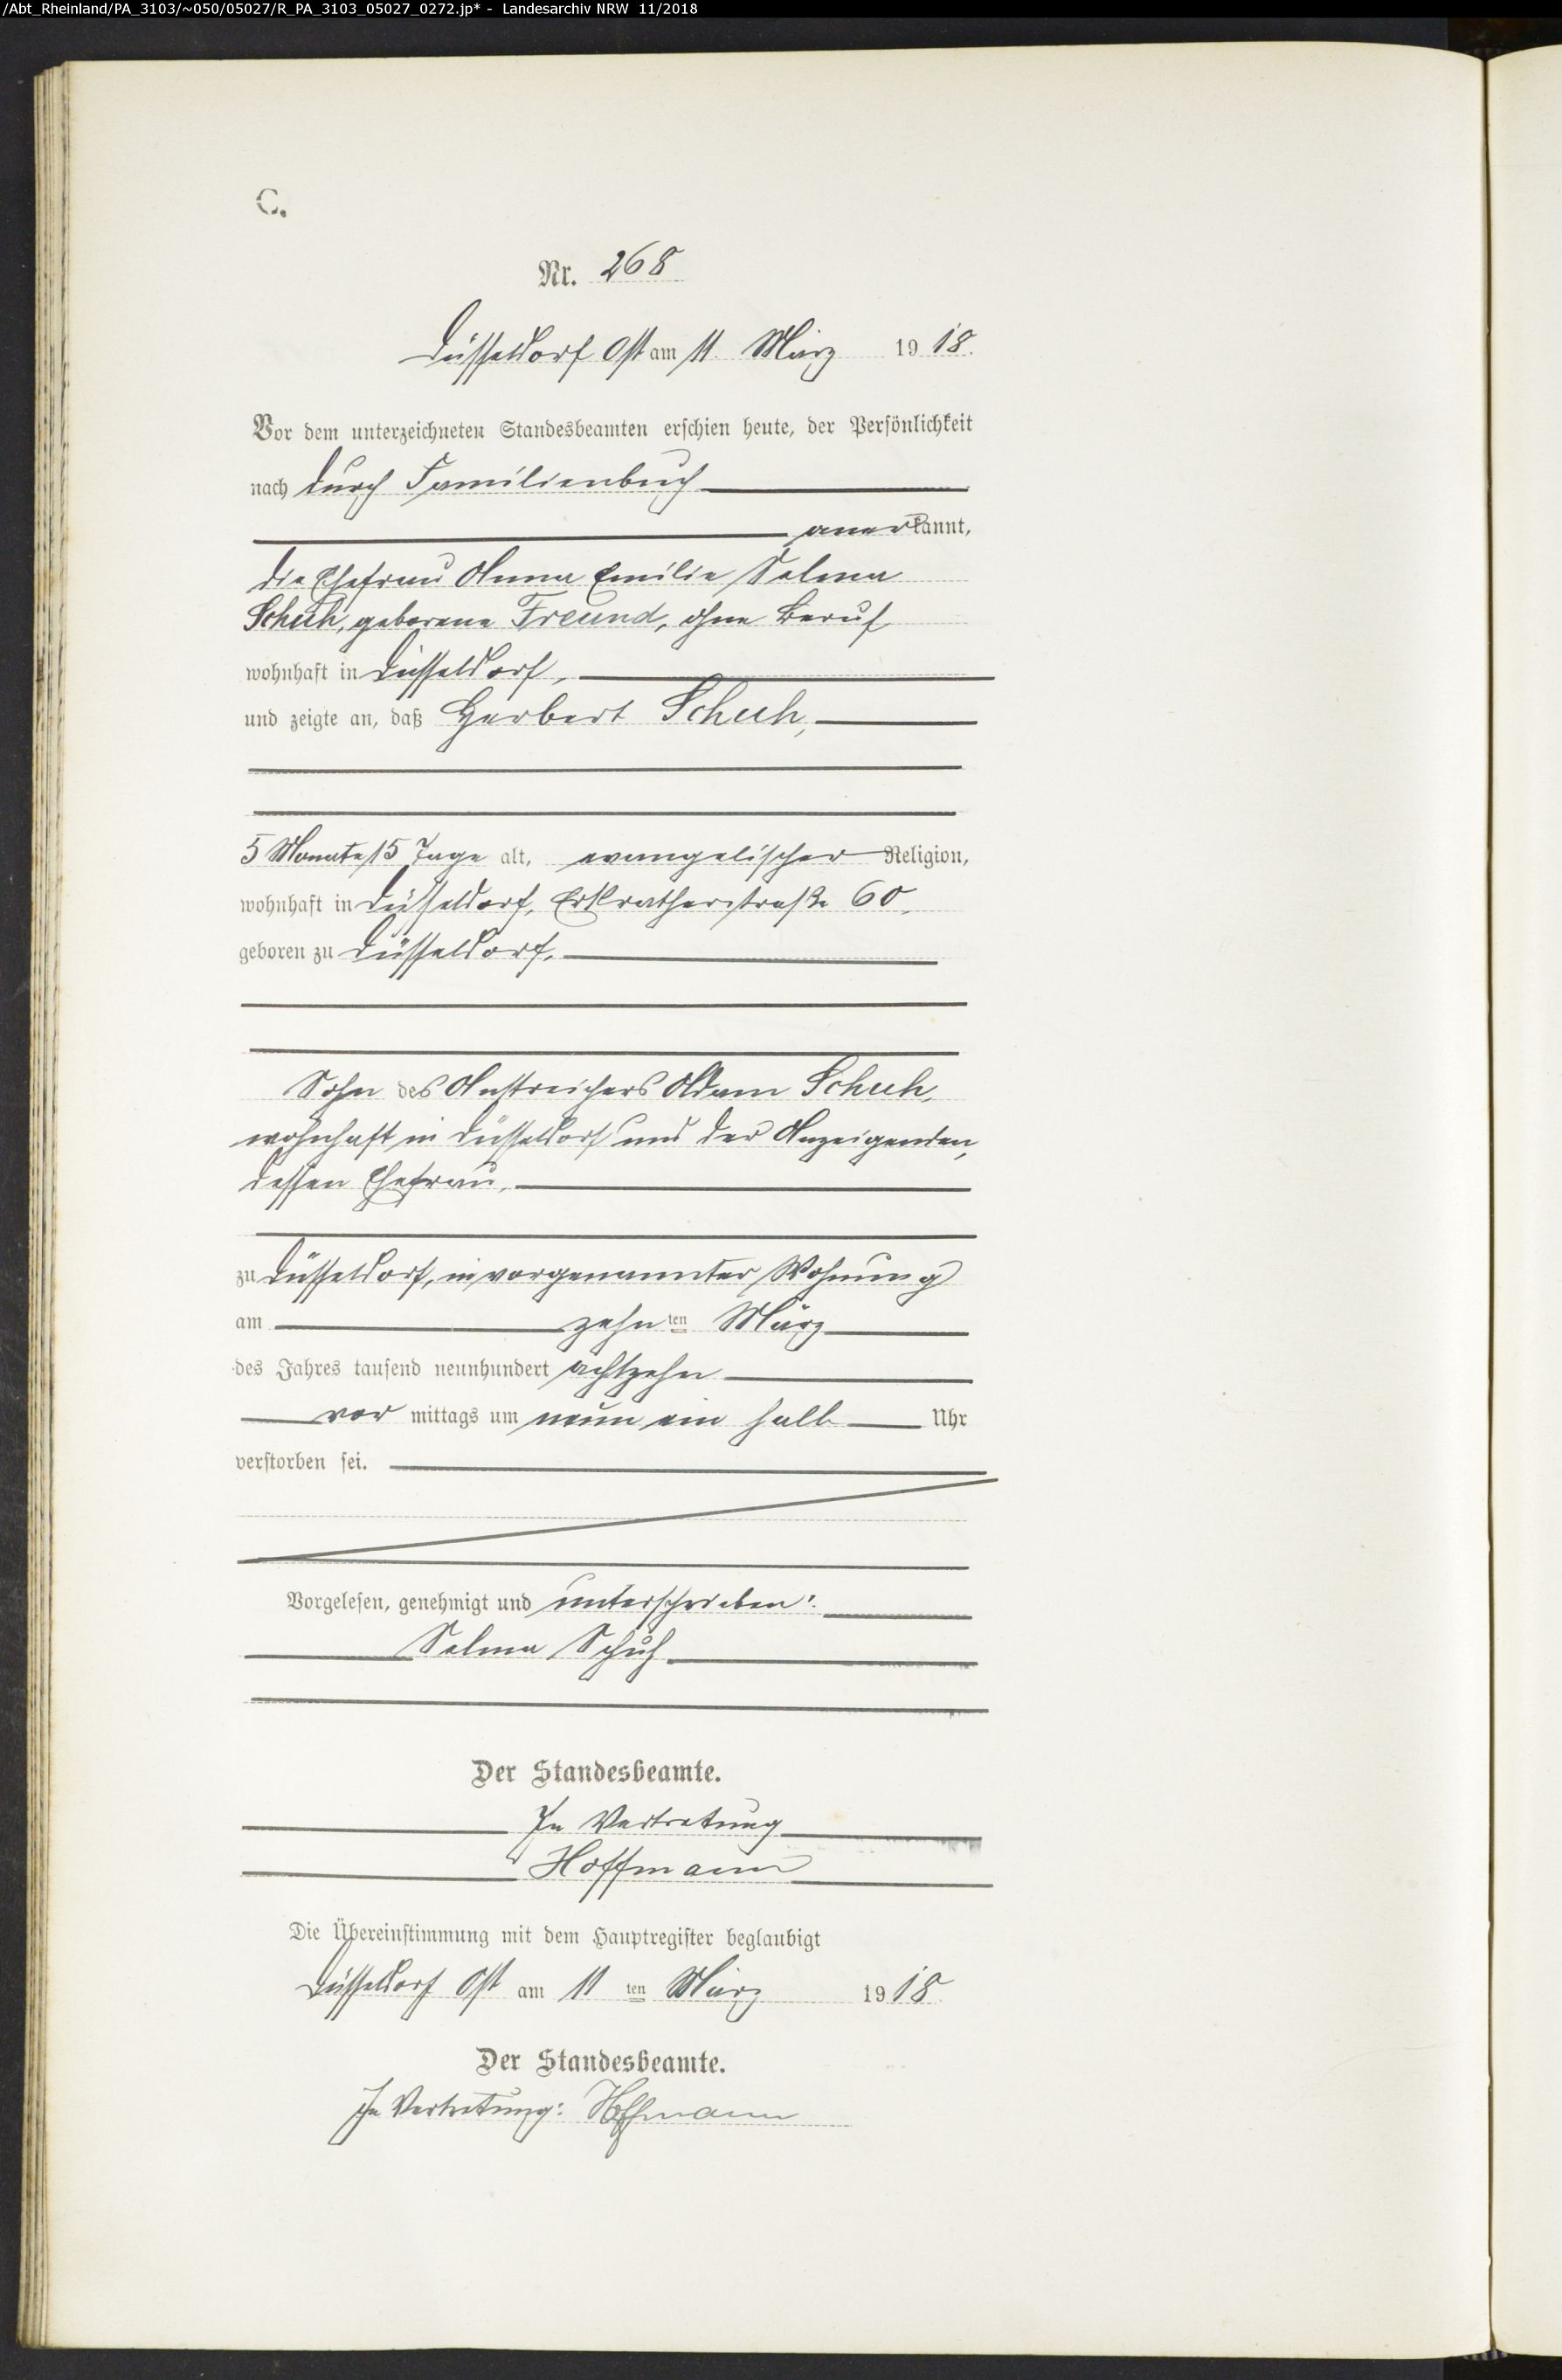 /Abt_Rheinland/PA_3103/~050/05027/R_PA_3103_05027_0272.jp* - Landesarchiv NRW 11/2018
C.
Nr. 268
Düsseldorf Ost am 11. März 1918.
Vor dem unterzeichneten Standesbeamten erschien heute, der Persönlichkeit
nach durch Familienbuch
anerkannt,
die Ehefrau Anna Emilie Selma
Schuh, geborene Freund, ohne Beruf
wohnhaft in Düsseldorf,
und zeigte an, daß Herbert Schuh,
5 Monate 15 Tage alt, evangelischer Religion,
wohnhaft in Düsseldorf, Erkratherstraße 60,
geboren zu Düsseldorf,
Sohn des Anstreichers Adam Schuh,
wohnhaft in Düsseldorf und der Anzeigenden,
dessen Ehefrau,
zu Düsseldorf, in vorgenannter Wohnung
am zehnten März
des Jahres tausend neunhundert achtzehn
vor mittags um neun ein halb Uhr
verstorben sei.
Vorgelesen, genehmigt und unterschrieben:
Selma Schuh
Der Standesbeamte.
In Vertretung
Hoffmann
Die Übereinstimmung mit dem Hauptregister beglaubigt
Düsseldorf Ost am 11 ten März 1918.
Der Standesbeamte.
In Vertretung: Hoffmann